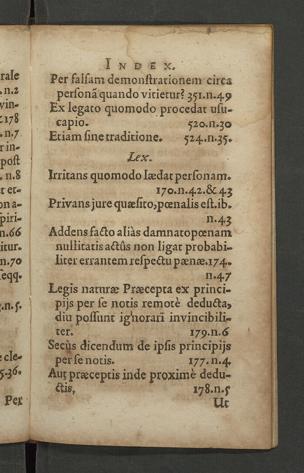 INDEX.
Per falsam demonstrationem circa
personā quando vitietur? 351.n.49
Ex legato quomodo procedat usu-
capio. 520.n.30
Etiam sine traditione. 524.n.35.
Lex.
Irritans quomodo lædat personam.
170.n.42.& 43
Privans jure quæsito, pœnalis est. ib.
n.43
Addens facto aliàs damnato pœnam
nullitatis actûs non ligat probabi-
liter errantem respectu pænæ. 174.
n.47
Legis naturæ Præcepta ex princi-
pijs per se notis remotè deducta,
diu possunt ignorari invincibili-
ter. 179.n.6
Secùs dicendum de ipsis principijs
per se notis. 177.n.4.
Aut præceptis inde proximè dedu-
ctis, 178.n.5
Ut
rale
n.2
vin-
178
n.7
r in-
post
n.8
t et-
on a-
piri-
n.66
itur.
n.70
seqq.
n.5.
cle-
5.36.
Per